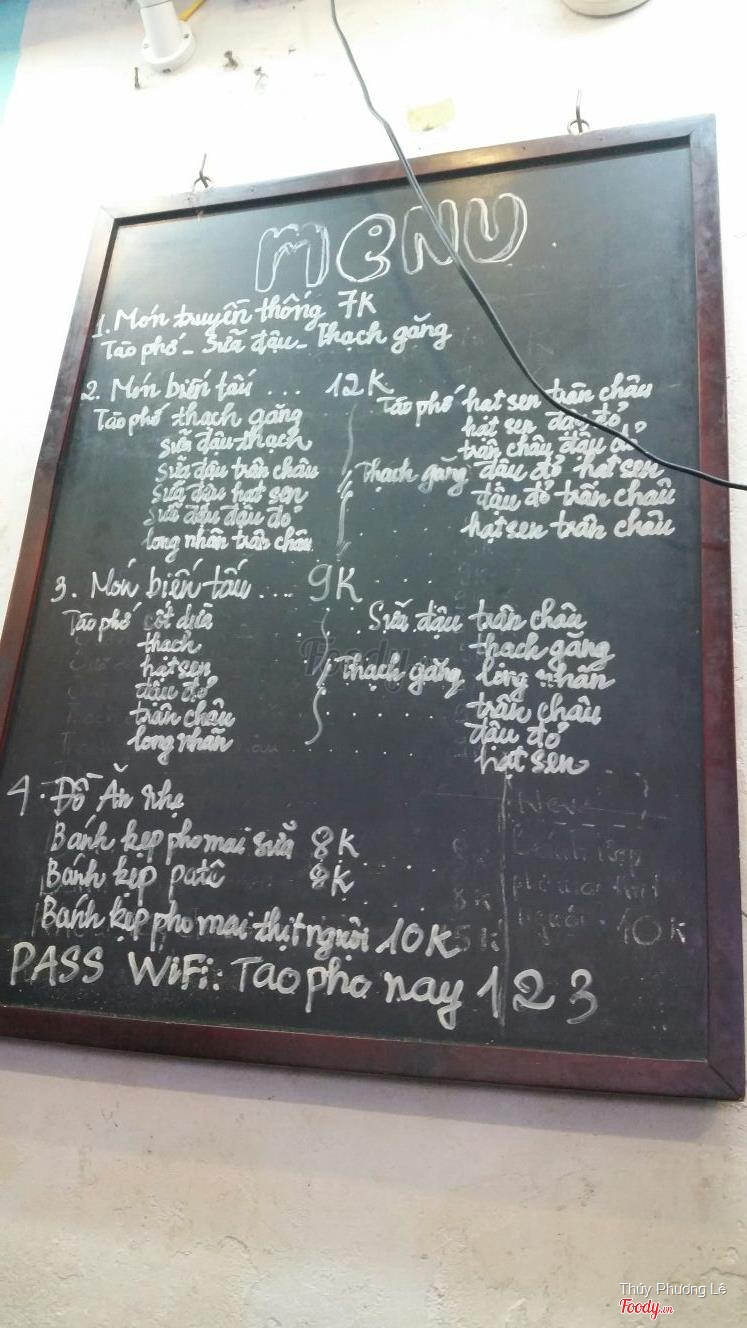 MENU
1. Món truyền thống 7K
Tào phớ - Sữa đậu - Thạch găng
2. Món biến tấu ... 12K
Tào phớ thạch găng
sữa đậu thạch
Sữa đậu trân châu
Sữa đậu hạt sen
Sữa đậu đậu đỏ
long nhãn trân châu
Tào phớ hạt sen trân châu
hạt sen đậu đỏ
trân châu đậu đỏ
Thạch găng đậu đỏ hạt sen
đậu đỏ trân châu
hạt sen trân châu
3. Món biến tấu ... 9K
Tào phớ cốt dừa
thạch
hạt sen
đậu đỏ
trân châu
long nhãn
Sữa đậu trân châu
thạch găng
Thạch găng long nhãn
trân châu
đậu đỏ
hạt sen
4. Đồ Ăn nhẹ
Bánh kẹp pho mai sữa 8K
Bánh kẹp patê 8K
Bánh kẹp pho mai thịt nguội 10K
PASS WiFi: Taopho nay 123
New
10K
Foody
Thúy Phương Lê
Foody.vn